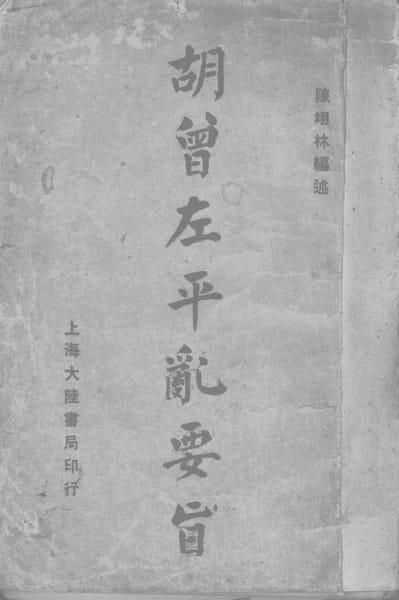 陳翊林編述
胡曾左平亂要旨
上海大陸書局印行